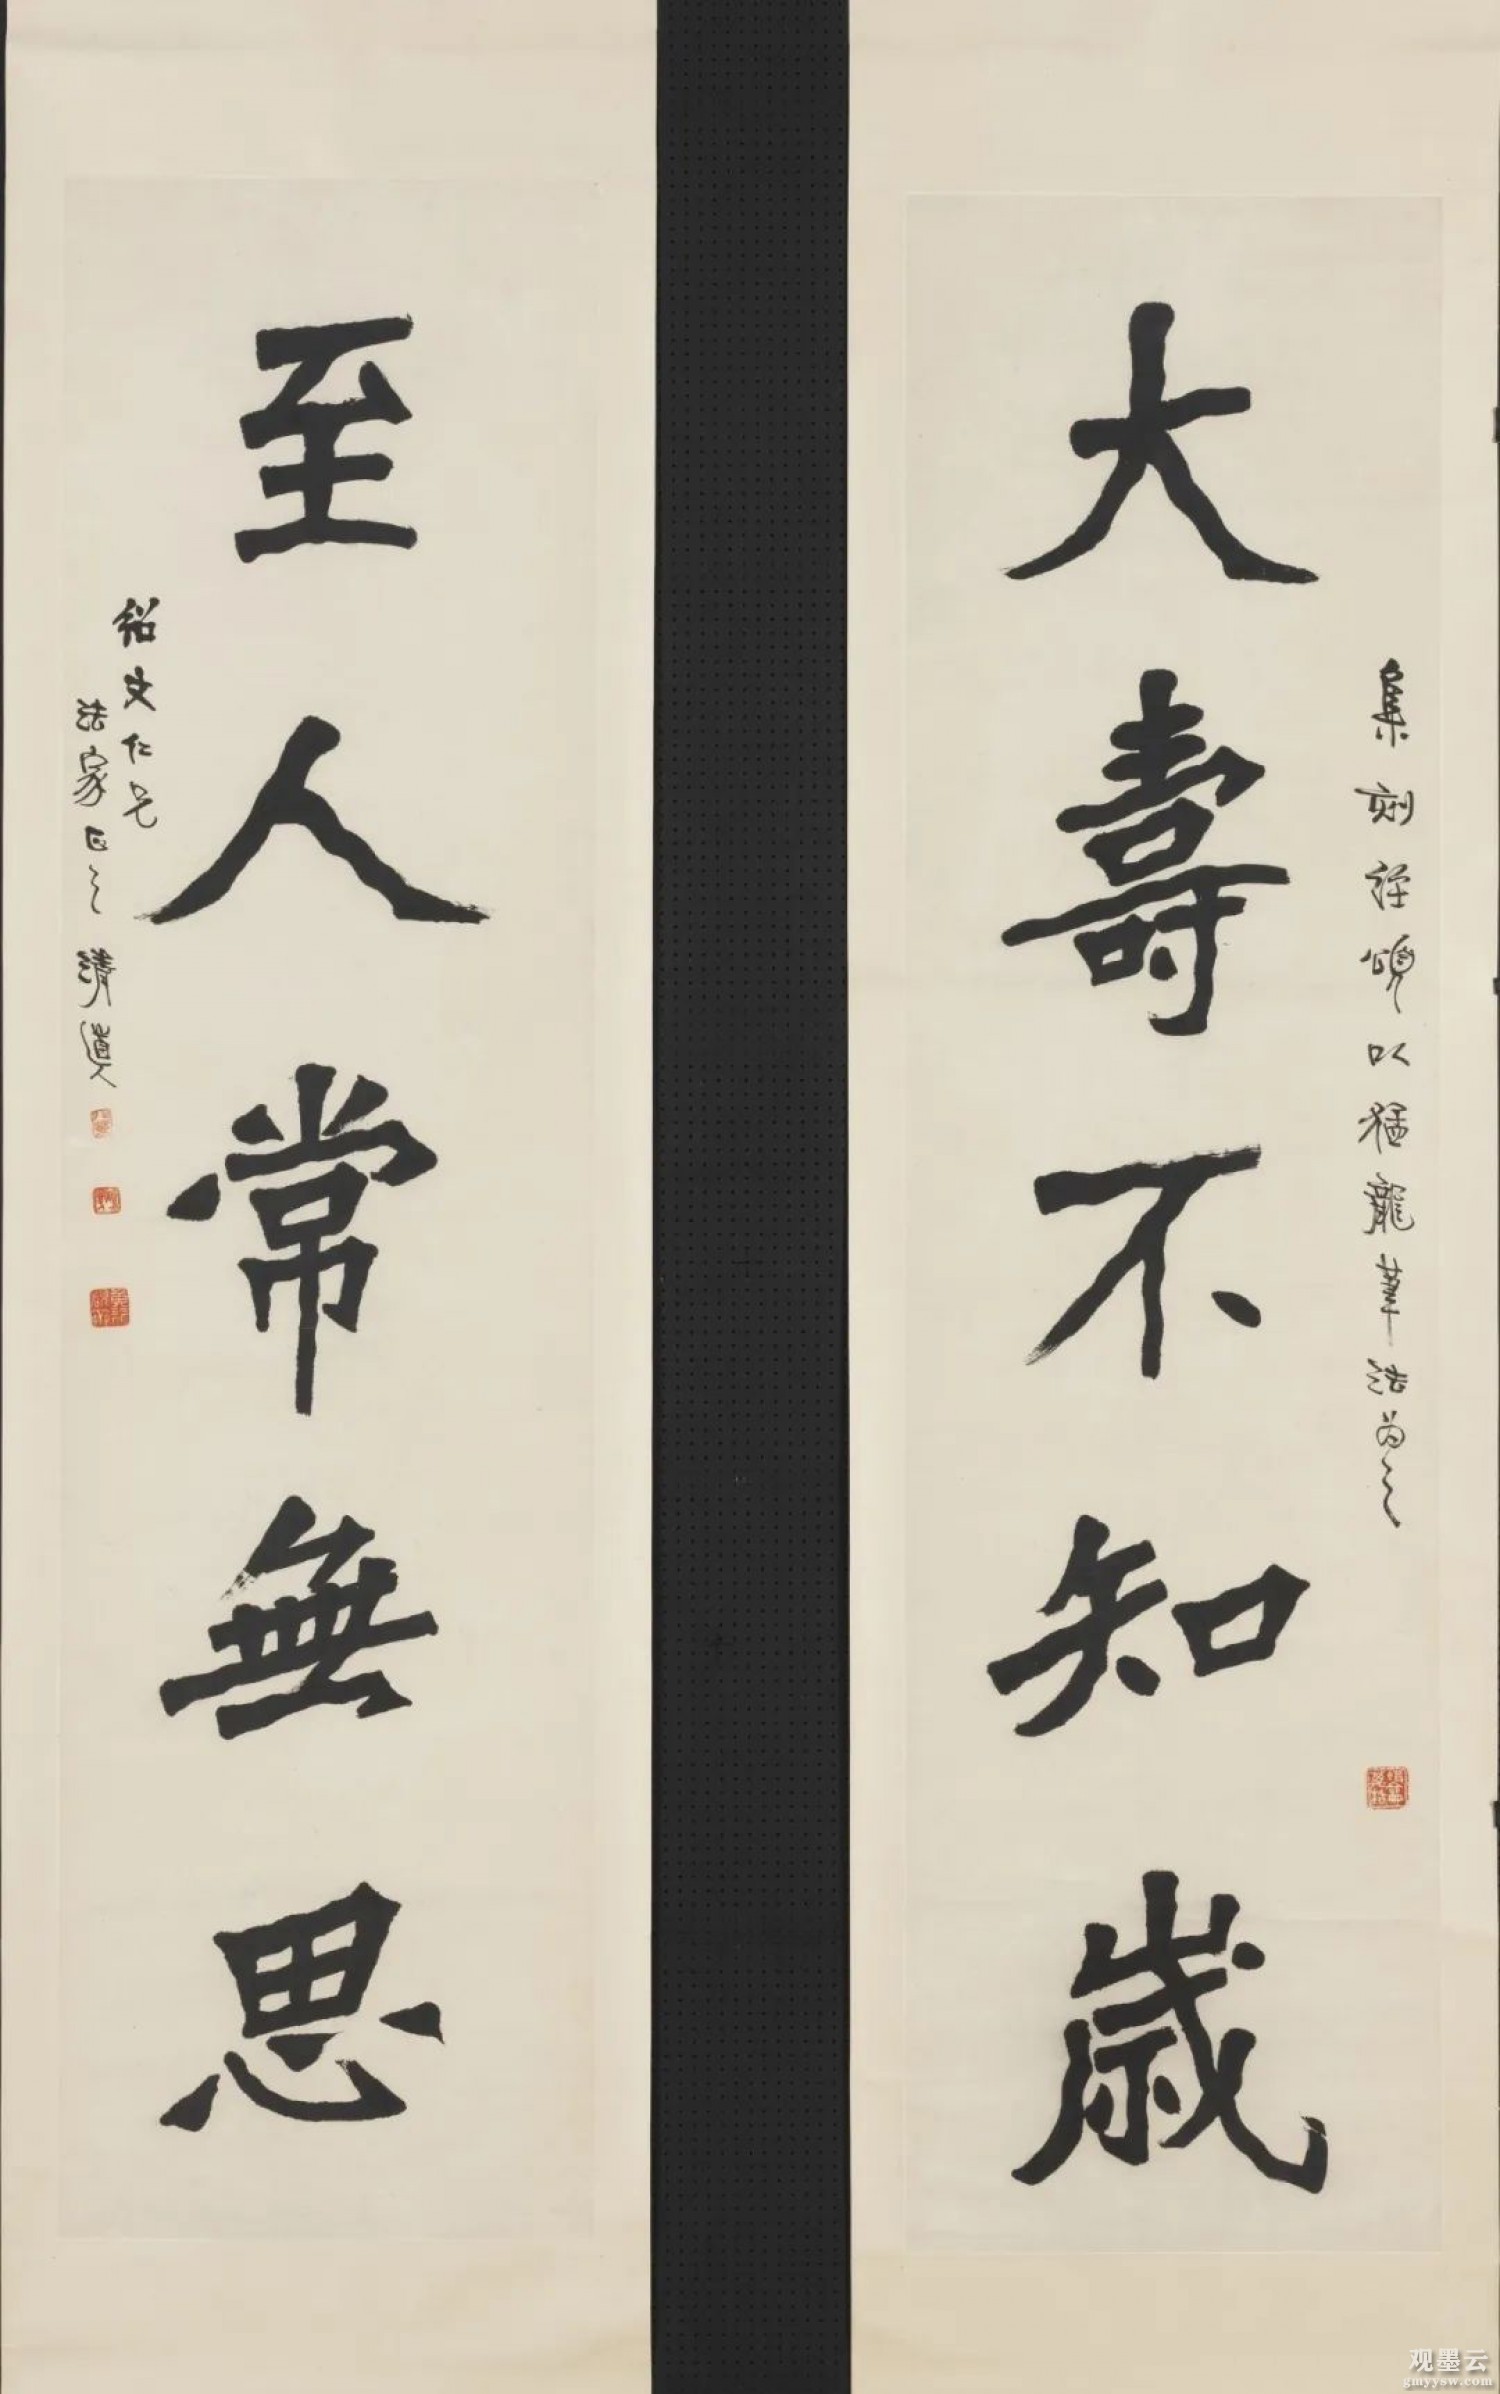 大壽不知歲
集刻經頌以猛龍筆法為之
至人常無思
紹文仁兄
法家正之 清道人
观墨云
gmyysw.com